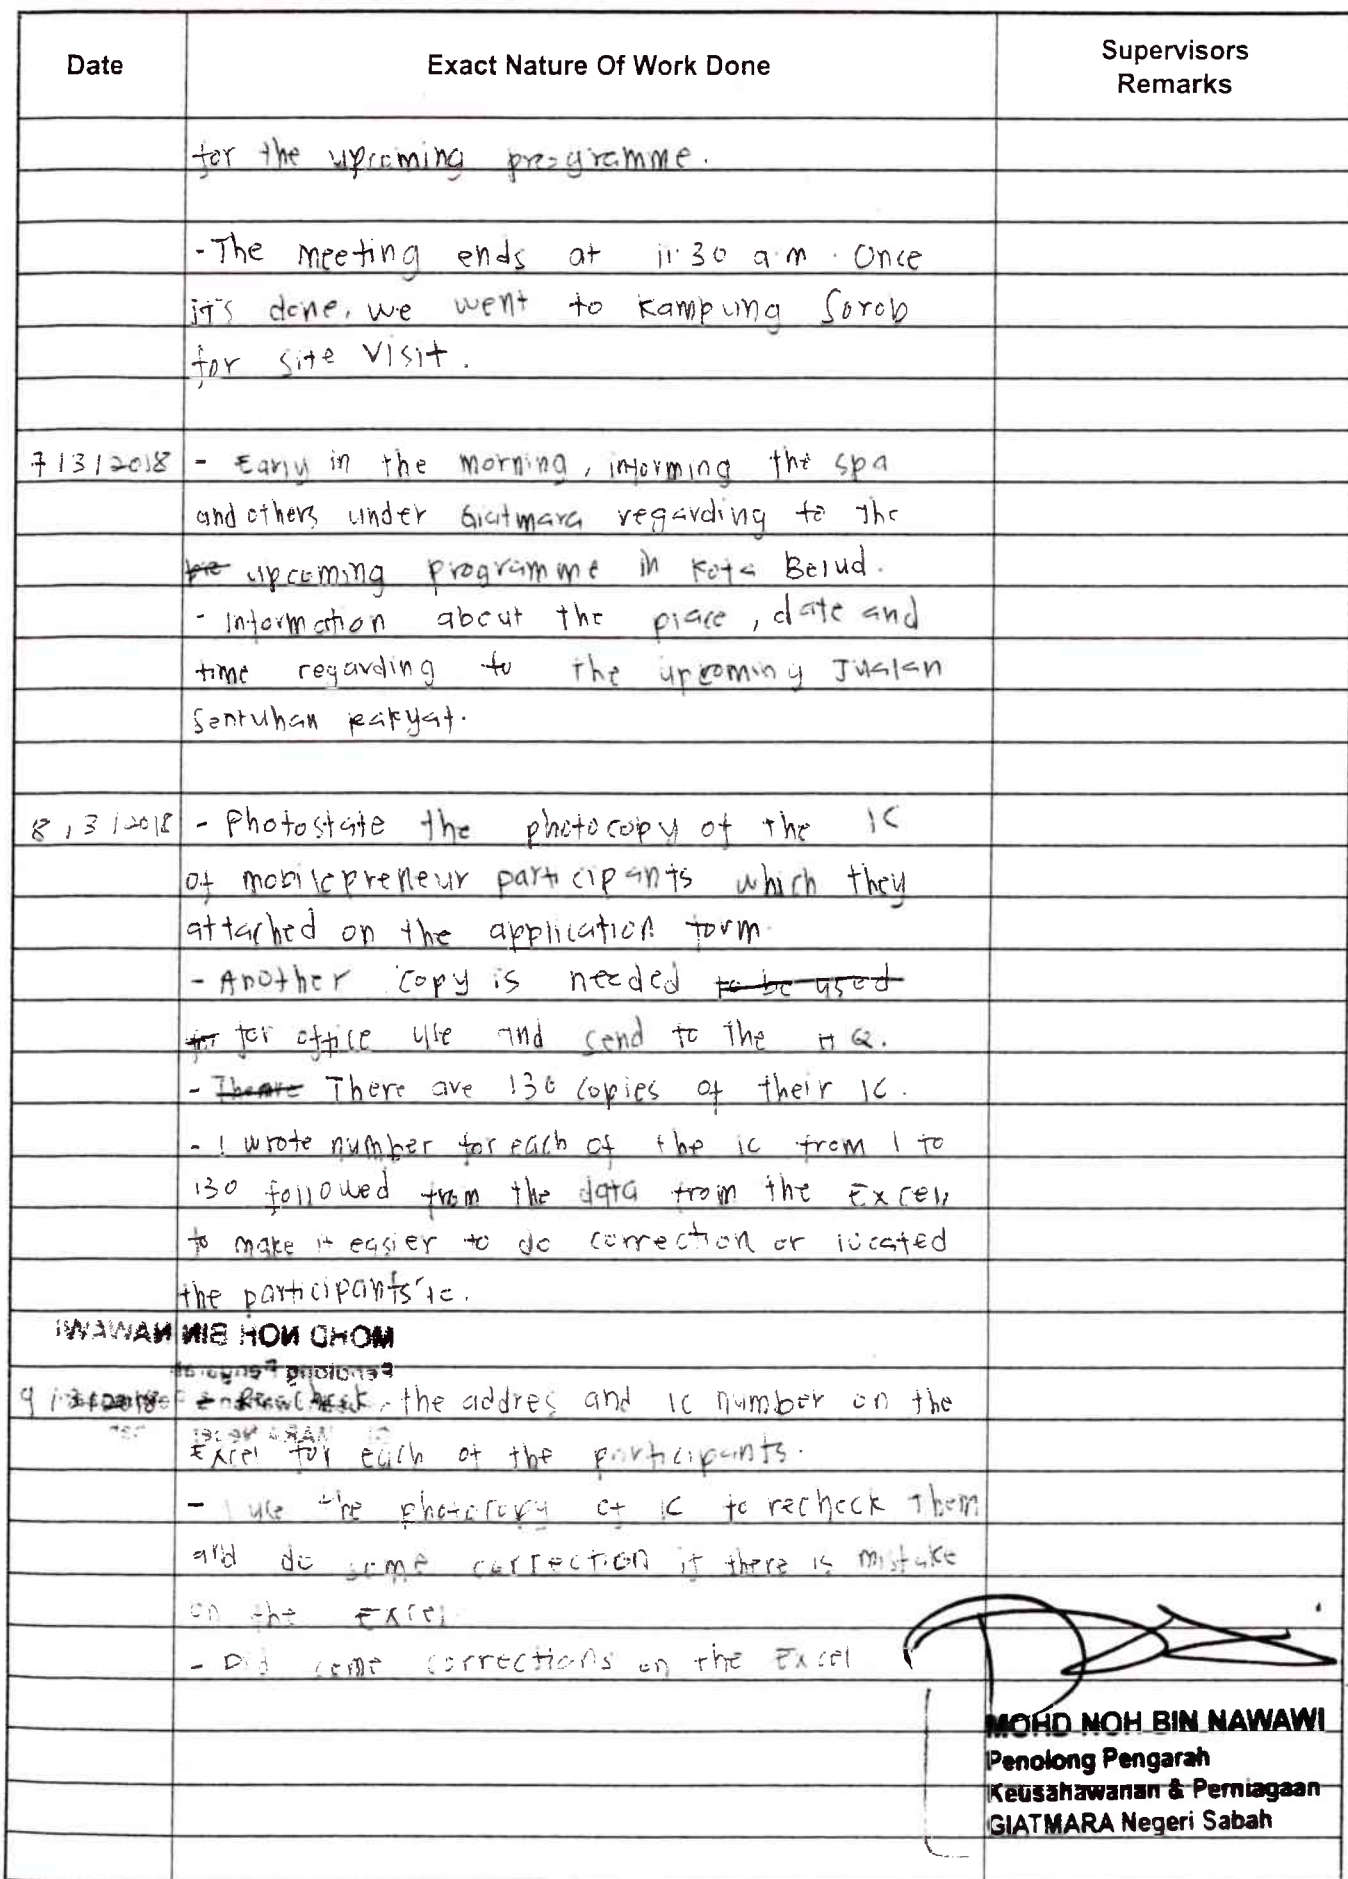 Date Exact Nature Of Work Done Supervisors Remarks
for the upcoming programme.
- The meeting ends at 11.30 a.m. Once
it's done, we went to Kampung Sorob
for site visit.
7/3/2018 - Early in the morning, informing the spa
and others under Giatmara regarding to the
upcoming programme in Kota Belud.
- Information about the place, date and
time regarding to the upcoming Jualan
Sentuhan Rakyat.
8/3/2018 - Photostate the photocopy of the IC
of mobilepreneur participants which they
attached on the application form.
- Another copy is needed to be used
for office use and send to the HQ.
- There are 130 copies of their IC.
- I wrote number for each of the ic from 1 to
130 followed from the data from the Excel,
to make it easier to do correction or located
the participants' ic.
MOHD NOH BIN NAWAWI
Penolong Pengarah
9/3/2018 - the addres and IC number on the
Excel for each of the participants.
- I use the photocopy of IC to recheck them
and do some correction if there is mistake
on the Excel
- Did some corrections on the Excel
MOHD NOH BIN NAWAWI
Penolong Pengarah
Keusahawanan & Perniagaan
GIATMARA Negeri Sabah